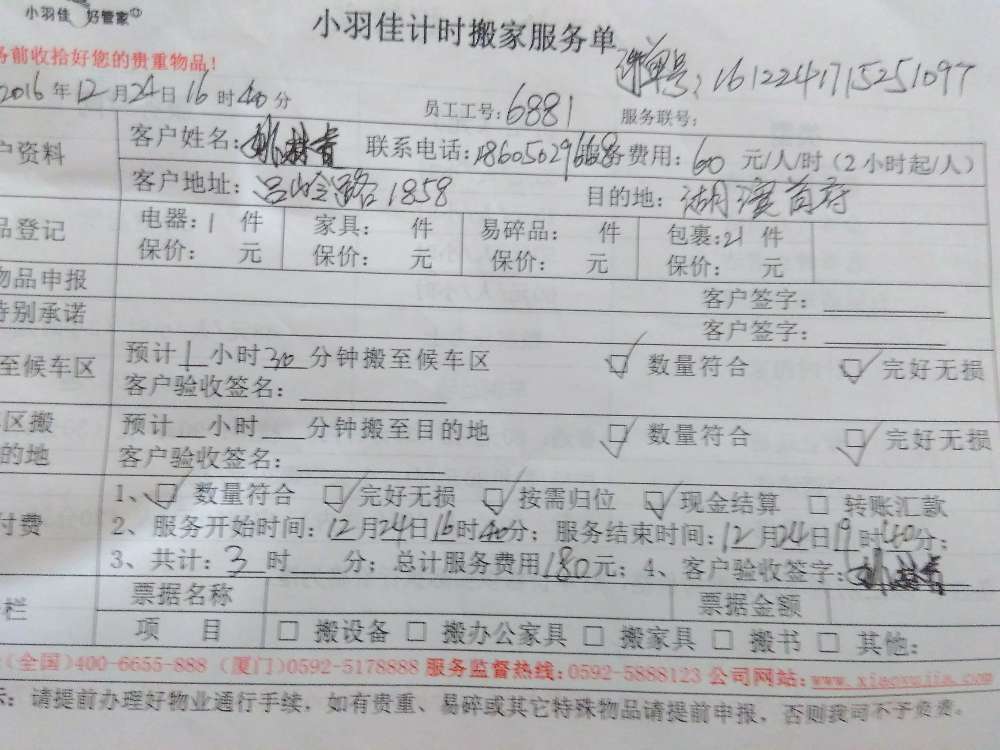 小羽佳 好管家
小羽佳计时搬家服务单
务前收拾好您的贵重物品!
单号:1612241715251097
2016年12月24日16时40分 员工工号:6881 服务联号:
户资料 客户姓名: 联系电话:18605029668服务费用:60元/人/时(2小时起/人)
客户地址:吕岭路1858 目的地:湖滨首府
品登记 电器:1件 家具: 件 易碎品: 件 包裹:21件
保价: 元 保价: 元 保价: 元 保价: 元
物品申报 客户签字:
特别承诺 客户签字:
至候车区 预计1小时30分钟搬至候车区 ☑ 数量符合 ☑ 完好无损
客户验收签名:
区搬 预计 小时 分钟搬至目的地 ☑ 数量符合 ☑ 完好无损
的地 客户验收签名:
1、☑ 数量符合 ☑ 完好无损 ☑ 按需归位 ☑ 现金结算 □ 转账汇款
付费 2、服务开始时间:12月24日16时40分;服务结束时间:12月24日19时40分;
3、共计:3时 分;总计服务费用180元;4、客户验收签字:
栏 票据名称 票据金额
项 目 □ 搬设备 □ 搬办公家具 □ 搬家具 □ 搬书 □ 其他:
(全国)400-6655-888 (厦门)0592-5178888 服务监督热线:0592-5888123 公司网站:www.xiaoyujia.com
示:请提前办理好物业通行手续,如有贵重、易碎或其它特殊物品请提前申报,否则我司不予负责。